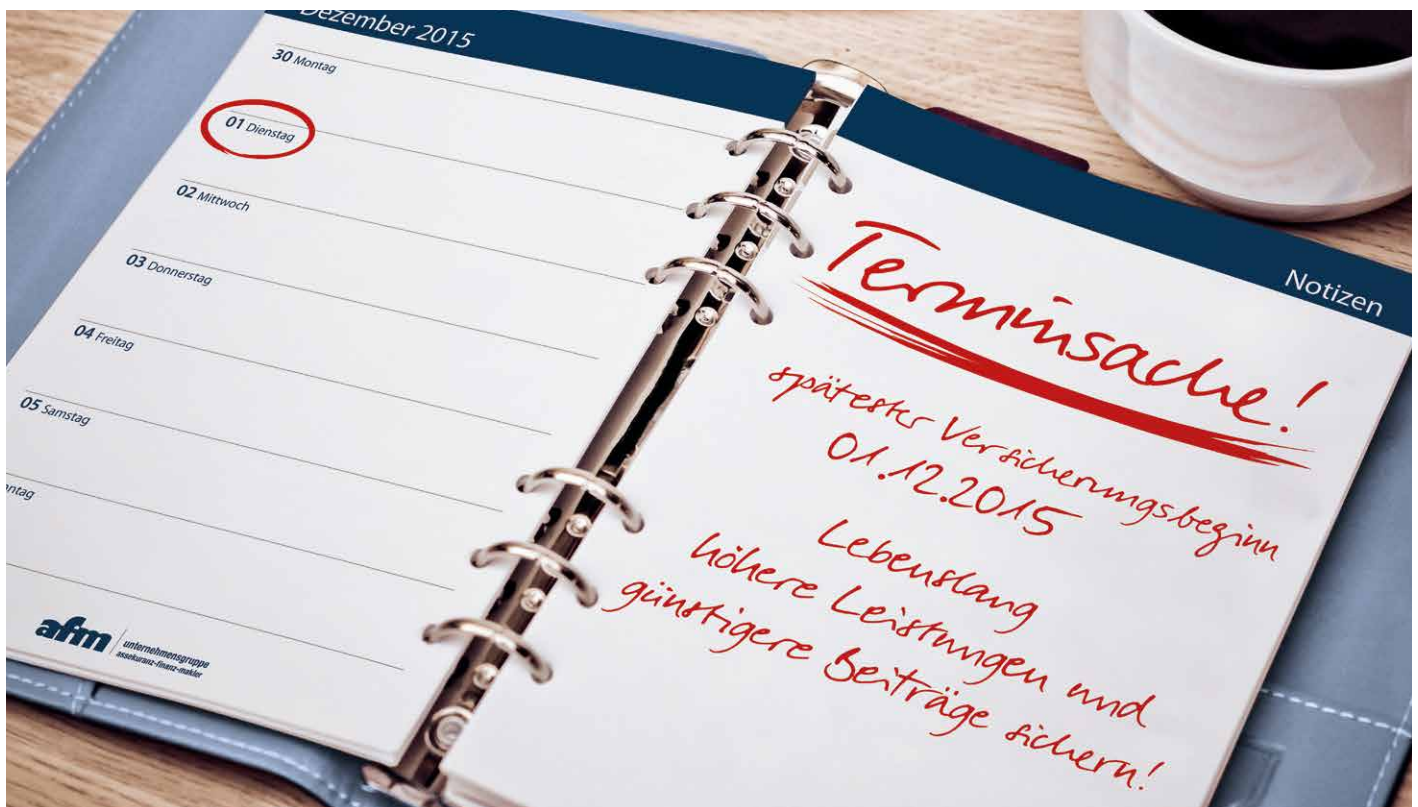 Dezember 2015
30 Montag
01 Dienstag
02 Mittwoch
03 Donnerstag
04 Freitag
05 Samstag
ntag
afm
unternehmensgruppe
assekuranz-finanz-makler
Notizen
Terminsache!
spätester Versicherungsbeginn
01.12.2015
Lebenslang
höhere Leistungen und
günstigere Beiträge sichern!